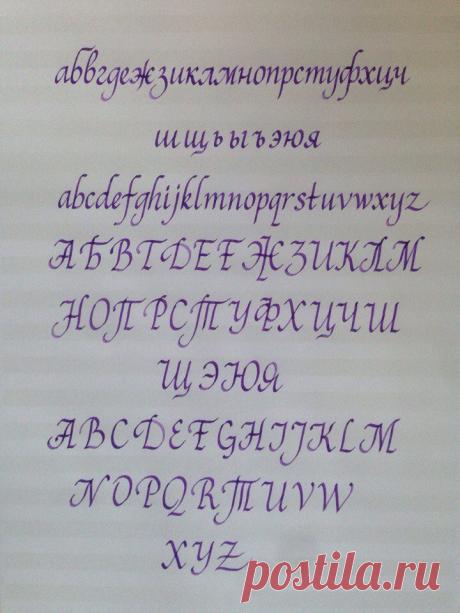 абвгдежзиклмнопрстуфхцч
шщьыъэюя
abcdefghijklmnopqrstuvwxyz
АБВГДЕFЖЗИКЛМ
НОПРСТУФХЦЧШ
ЩЭЮЯ
ABCDEFGHIJKLM
NOPQRTUVW
XYZ
postila.ru